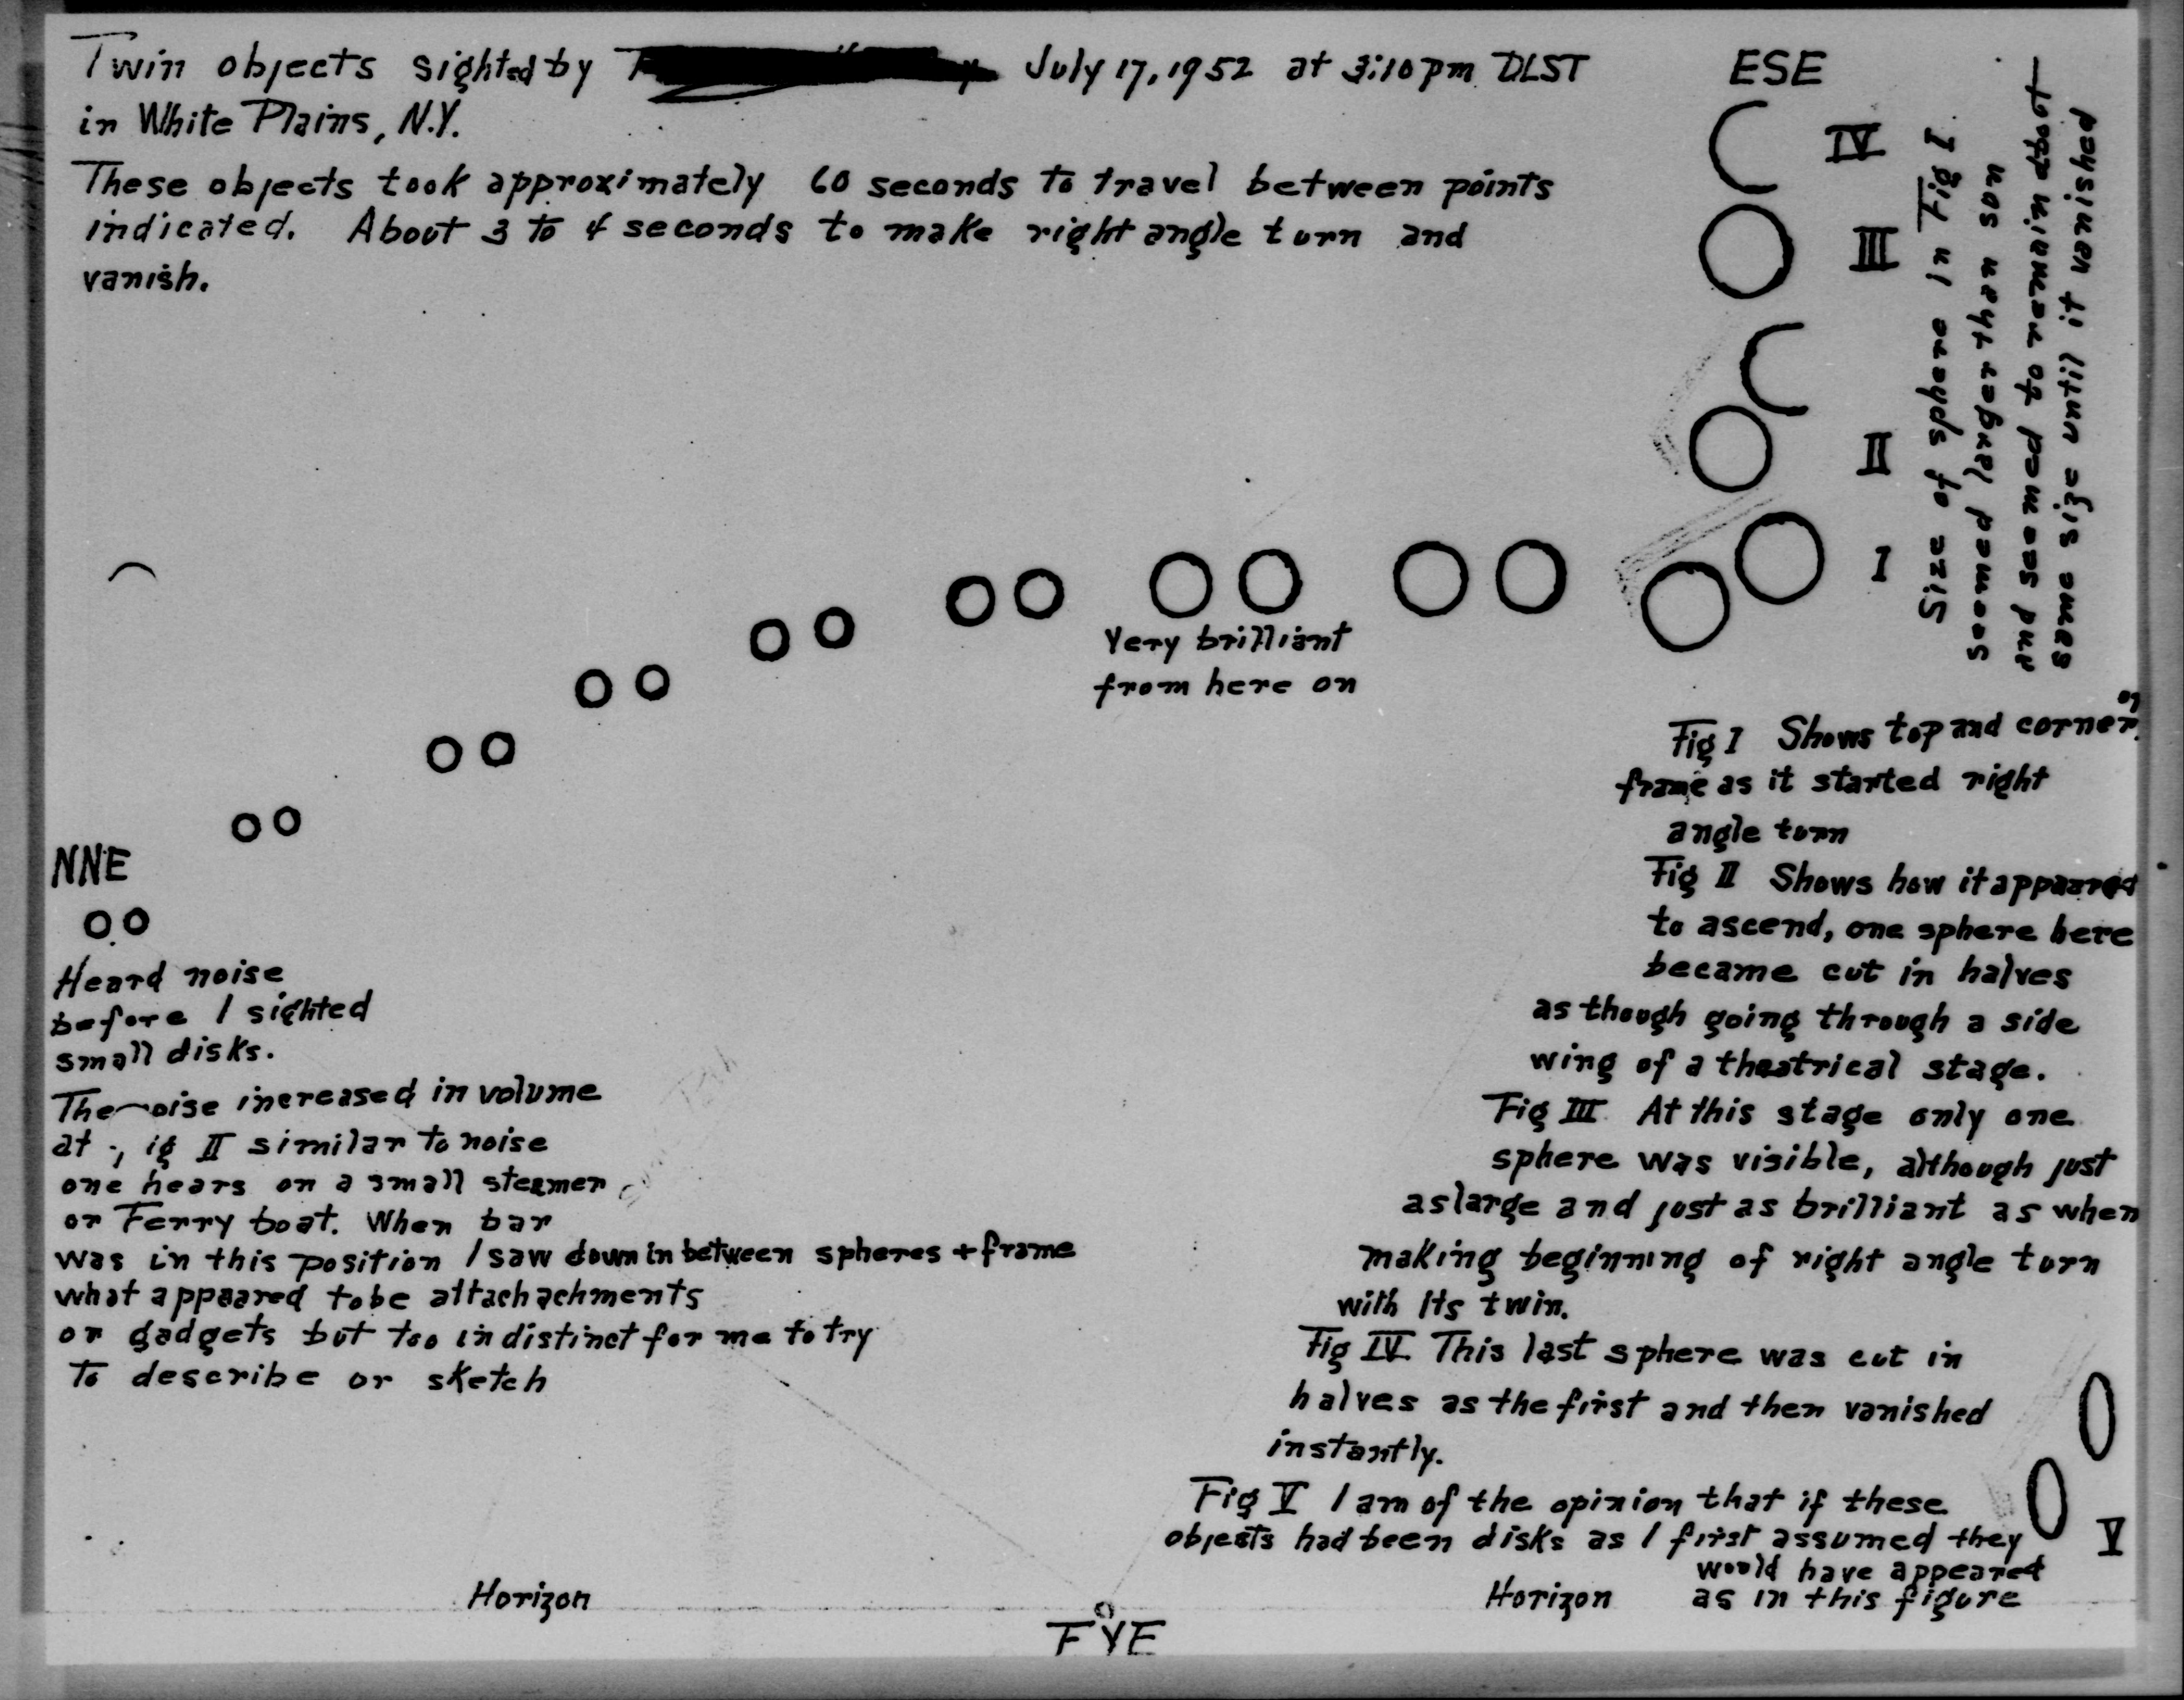 Twin objects sighted by July 17, 1952 at 3:10 pm DLST
in White Plains, N.Y.
These objects took approximately 60 seconds to travel between points
indicated. About 3 to 4 seconds to make right angle turn and
vanish.
ESE
IV
III
II
I
Size of sphere in Fig I.
seemed larger than sun
and seemed to remain about
same size until it vanished
Very brilliant
from here on
NNE
Heard noise
before I sighted
small disks.
The noise increased in volume
at ig II similar to noise
one hears on a small steamer
or Ferry boat. When bar
was in this position I saw down in between spheres + frame
what appeared to be attachachments
or gadgets but too indistinct for me to try
To describe or sketch
Fig I Shows top and corner of
frame as it started right
angle turn
Fig II Shows how it appeared
to ascend, one sphere here
became cut in halves
as though going through a side
wing of a theatrical stage.
Fig III At this stage only one
sphere was visible, although just
as large and just as brilliant as when
making beginning of right angle turn
with its twin.
Fig IV. This last sphere was cut in
halves as the first and then vanished
instantly.
Fig V I am of the opinion that if these
objects had been disks as I first assumed they
would have appeared
as in this figure
V
Horizon
Horizon
EYE